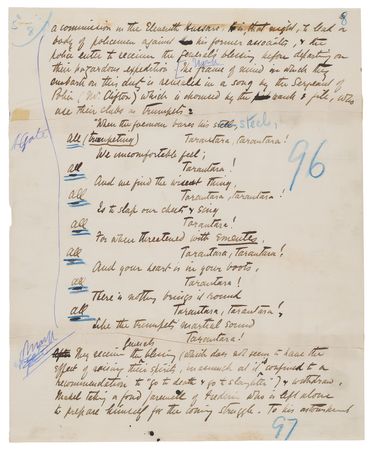 8
a commission in the Eleventh Hussars. It is that night, to lead a
body of policemen against his former associates, & the
police enter to receive the General's blessing before departing on
their hazardous expedition. The frame of mind in which they
embark on this duty is indicated in a song by the Sergeant of
Police (Mr Clifton) which is chorused by the & file, who
use their clubs as trumpets:
When the foeman bares his steel,
all (trumpeting) Tarantara, tarantara!
We uncomfortable feel;
all Tarantara!
96
And we find the wisest thing,
all Tarantara, tarantara!
Is to slap our chests & sing
all Tarantara!
For when threatened with emeutes,
all Tarantara, tarantara!
And your heart is in your boots,
all Tarantara!
There is nothing brings it round
all Tarantara, tarantara!
Like the trumpets' martial sound
Tarantara!
They receive the General's blessing (which does not seem to have the
effect of raising their spirits, in as much as it is confined to a
recommendation to "go to death & go to slaughter") & withdraw,
Mabel taking a fond farewell of Frederic who is left alone
to prepare himself for the coming struggle. To his astonishment
97